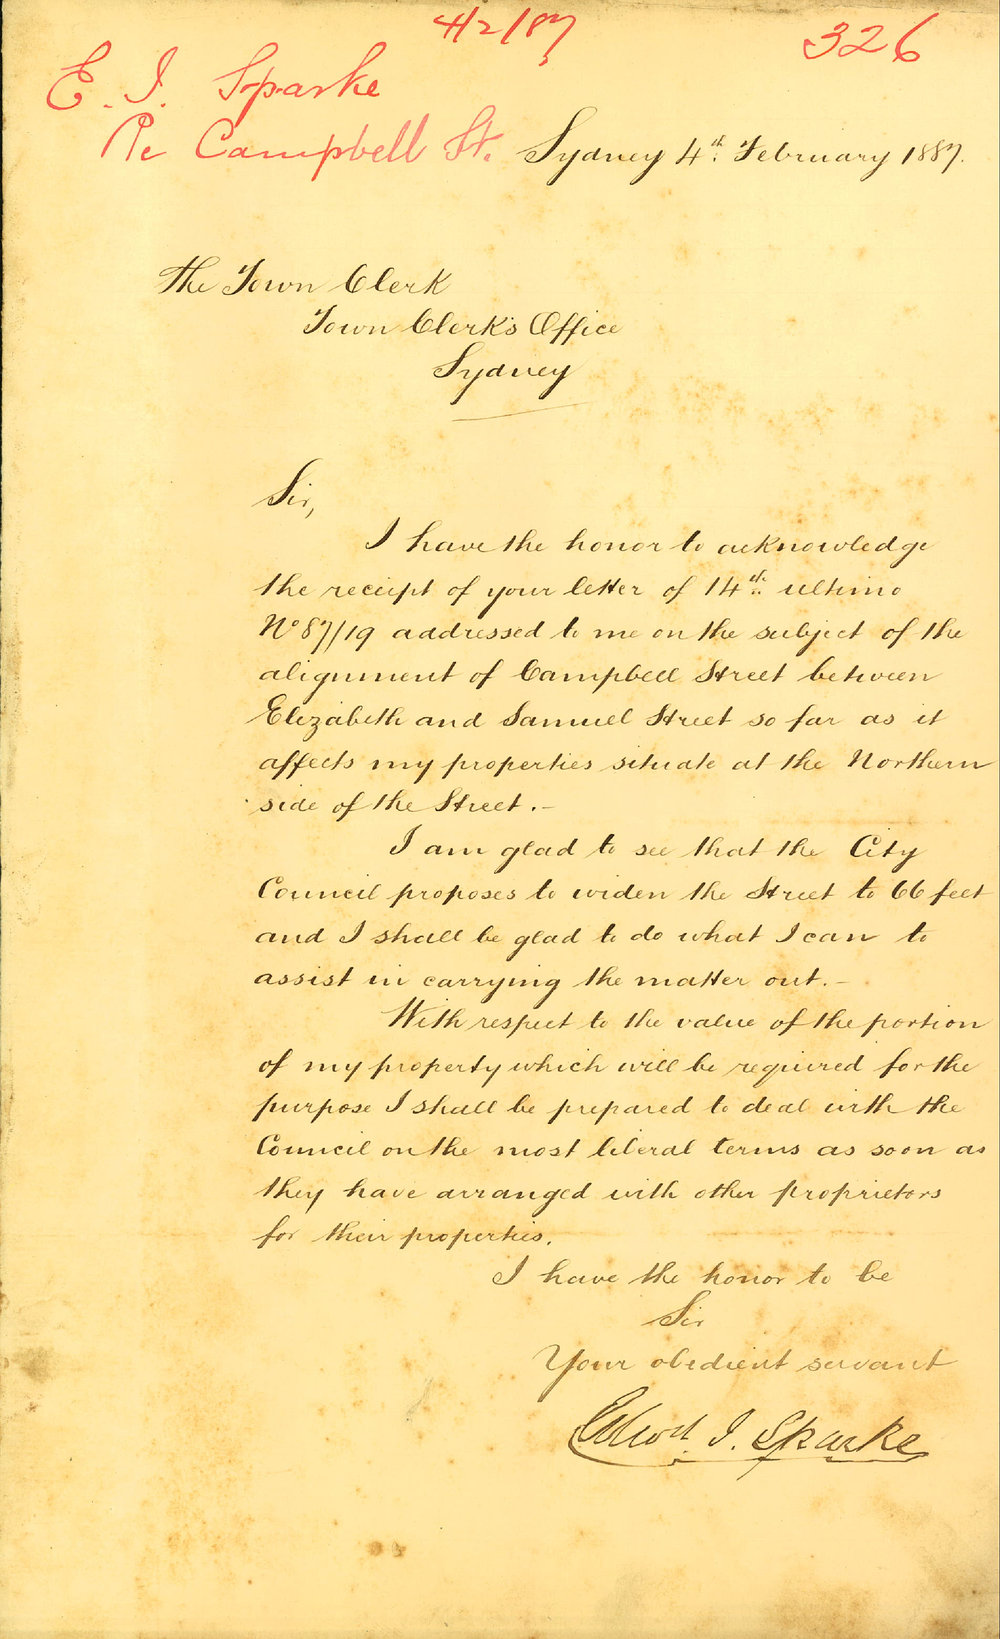 4/2/87
326
E. I. Sparke
Re Campbell St.
Sydney 4th. February 1887.
The Town Clerk
Town Clerk's Office
Sydney
Sir,
I have the honor to acknowledge
the receipt of your letter of 14th. ultimo
No 87/19 addressed to me on the subject of the
alignment of Campbell Street between
Elizabeth and Samuel Street so far as it
affects my properties situate at the Northern
side of the Street.-
I am glad to see that the City
Council proposes to widen the Street to 66 feet
and I shall be glad to do what I can to
assist in carrying the matter out.-
With respect to the value of the portion
of my property which will be required for the
purpose I shall be prepared to deal with the
Council on the most liberal terms as soon as
they have arranged with other proprietors
for their properties.
I have the honor to be
Sir
Your obedient servant
Edwd. I. Sparke